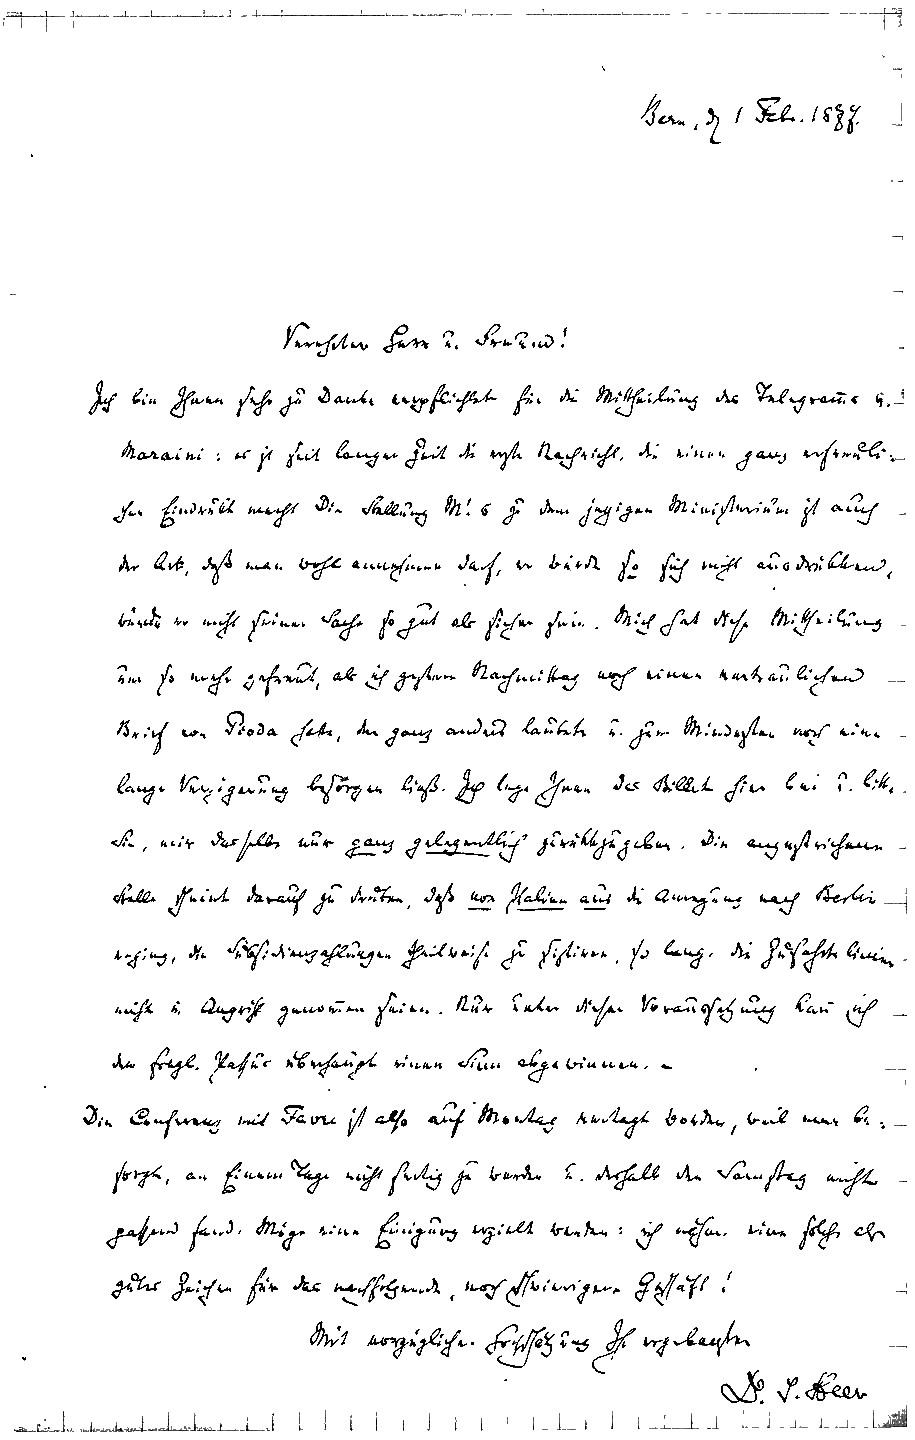 Bern, d 1 Febr. 1877.
Verehrter Herr u. Freund!
Ich bin Ihnen sehr zu Danke verpflichtet für die Mittheilung des Telegramms v.
Maraini: es ist seit langer Zeit die erste Nachricht, die einen ganz erfreuli-
chen Eindrukk macht. Die Stellung M's zu dem jezigen Ministerium ist auch
der Art, daß man wohl annehmen darf, er würde so sich nicht ausdrükken,
würde er nicht seiner Sache so gut als sicher sein. Mich hat diese Mittheilung
um so mehr gefreut, als ich gestern Nachmittag noch einen vertraulichen
Brief von Pioda hatte, der ganz anders lautete u. zum Mindesten noch eine
lange Verzögerung besorgen ließ. Ich lege Ihnen das Billet hier bei u. bitte
Sie, mir dasselbe nur ganz gelegentlich zurükkzugeben. Die angestrichene
Stelle scheint darauf zu deuten, daß von Italien aus die Anregung nach Berlin
erging, die Subsidienzahlungen theilweise zu sistiren, so lange die Zufahrtslinien
nicht in Angriff genommen seien. Nur unter dieser Voraussetzung kann ich
dem fragl. Passus überhaupt einen Sinn abgewinnen. –
Die Conferenz mit Favre ist also auf Montag vertagt worden, weil man be-
sorgte, an Einem Tage nicht fertig zu werden u. deshalb den Samstag nicht
passend fand. Möge eine Einigung erzielt werden: ich nehme eine solche als
gutes Zeichen für das nachfolgende, noch schwierigere Geschäft!
Mit vorzüglicher Hochschätzung Ihr ergebenster
Dr. J. Heer